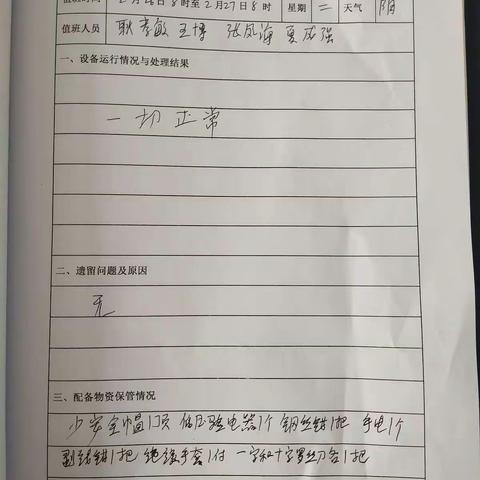 值班时间 2月26日8时至2月27日8时 星期 二 天气 阴
值班人员 耿孝敏 王博 张凤海 夏成强
一、设备运行情况与处理结果
一切正常
二、遗留问题及原因
无
三、配备物资保管情况
少安全帽1顶 低压验电器1个 钢丝钳1把 手电1个
剥线钳1把 绝缘手套1付 一字和十字罗丝刀各1把